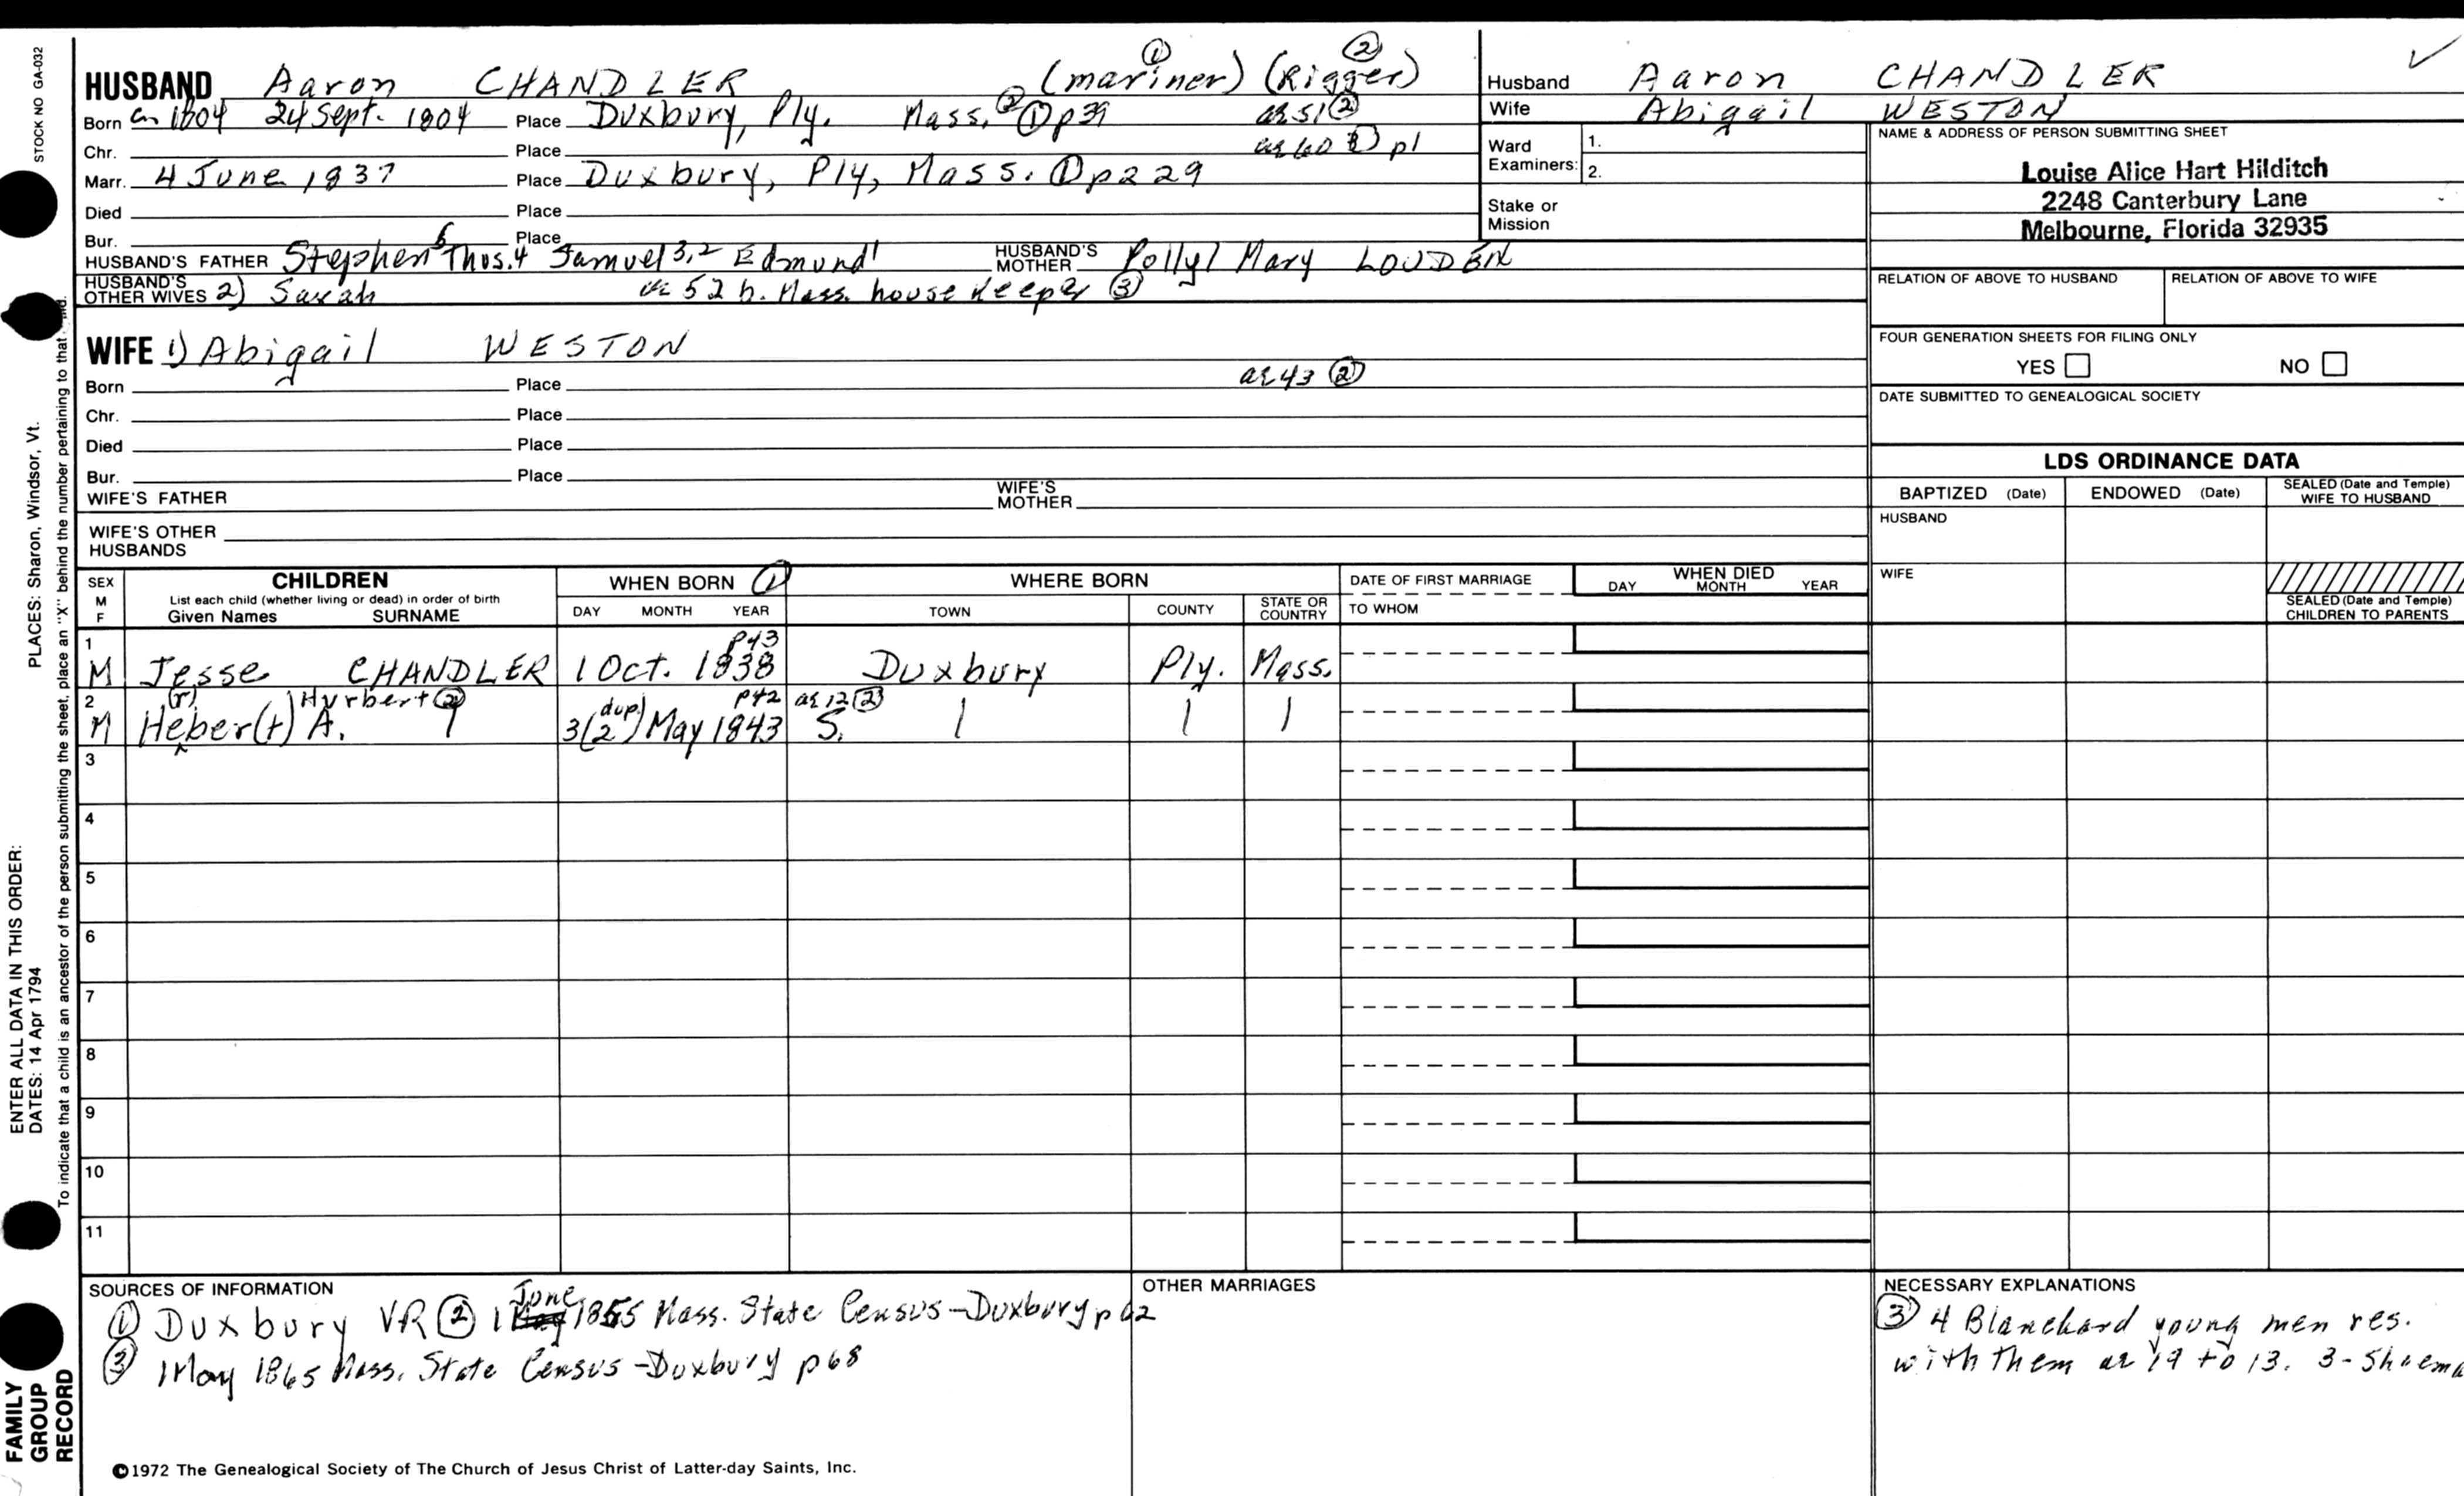 ① ②
HUSBAND Aaron CHANDLER (mariner) (Rigger)
Born ca 1804 24 Sept. 1804 Place Duxbury, Ply. Mass. ② ① p39 ae 51 ②
Chr. Place ae 60 p1
Marr. 4 June 1837 Place Duxbury, Ply, Mass. ① p229
Died Place
Bur. Place
HUSBAND'S FATHER Stephen Thos.4 Samuel 3,2 Edmund1 HUSBAND'S MOTHER Polly/ Mary LOUDEN
HUSBAND'S OTHER WIVES 2) Sarah ae 52 b. Mass. house keeper ③
WIFE 1) Abigail WESTON
Born Place ae 43 ②
Chr. Place
Died Place
Bur. Place
WIFE'S FATHER WIFE'S MOTHER
WIFE'S OTHER
HUSBANDS
Husband Aaron CHANDLER ✓
Wife Abigail WESTON
Ward Examiners: 1.
2.
Stake or
Mission
NAME & ADDRESS OF PERSON SUBMITTING SHEET
Louise Alice Hart Hilditch
2248 Canterbury Lane
Melbourne, Florida 32935
RELATION OF ABOVE TO HUSBAND RELATION OF ABOVE TO WIFE
FOUR GENERATION SHEETS FOR FILING ONLY
YES NO
DATE SUBMITTED TO GENEALOGICAL SOCIETY
LDS ORDINANCE DATA
BAPTIZED (Date) ENDOWED (Date) SEALED (Date and Temple) WIFE TO HUSBAND
HUSBAND
WIFE
SEALED (Date and Temple)
CHILDREN TO PARENTS
SEX M F CHILDREN WHEN BORN ① WHERE BORN DATE OF FIRST MARRIAGE WHEN DIED
List each child (whether living or dead) in order of birth
Given Names SURNAME DAY MONTH YEAR TOWN COUNTY STATE OR COUNTRY TO WHOM DAY MONTH YEAR
1 p43
M Jesse CHANDLER 1 Oct. 1838 Duxbury Ply. Mass.
2 (r) Hurbert ② dup p42 ae 12 ②
M Heber(t) A. 3(2) May 1843 S.
3
4
5
6
7
8
9
10
11
SOURCES OF INFORMATION
① Duxbury VR ② 1 June 1855 Mass. State Census-Duxbury p 62
③ 1 May 1865 Mass. State Census-Duxbury p68
OTHER MARRIAGES
NECESSARY EXPLANATIONS
③ 4 Blanchard young men res.
with them ae 19 to 13. 3-Shoema
©1972 The Genealogical Society of The Church of Jesus Christ of Latter-day Saints, Inc.
STOCK NO GA-032
PLACES: Sharon, Windsor, Vt.
ENTER ALL DATA IN THIS ORDER:
DATES: 14 Apr 1794
To indicate that a child is an ancestor of the person submitting the sheet, place an "X" behind the number pertaining to that
FAMILY
GROUP
RECORD